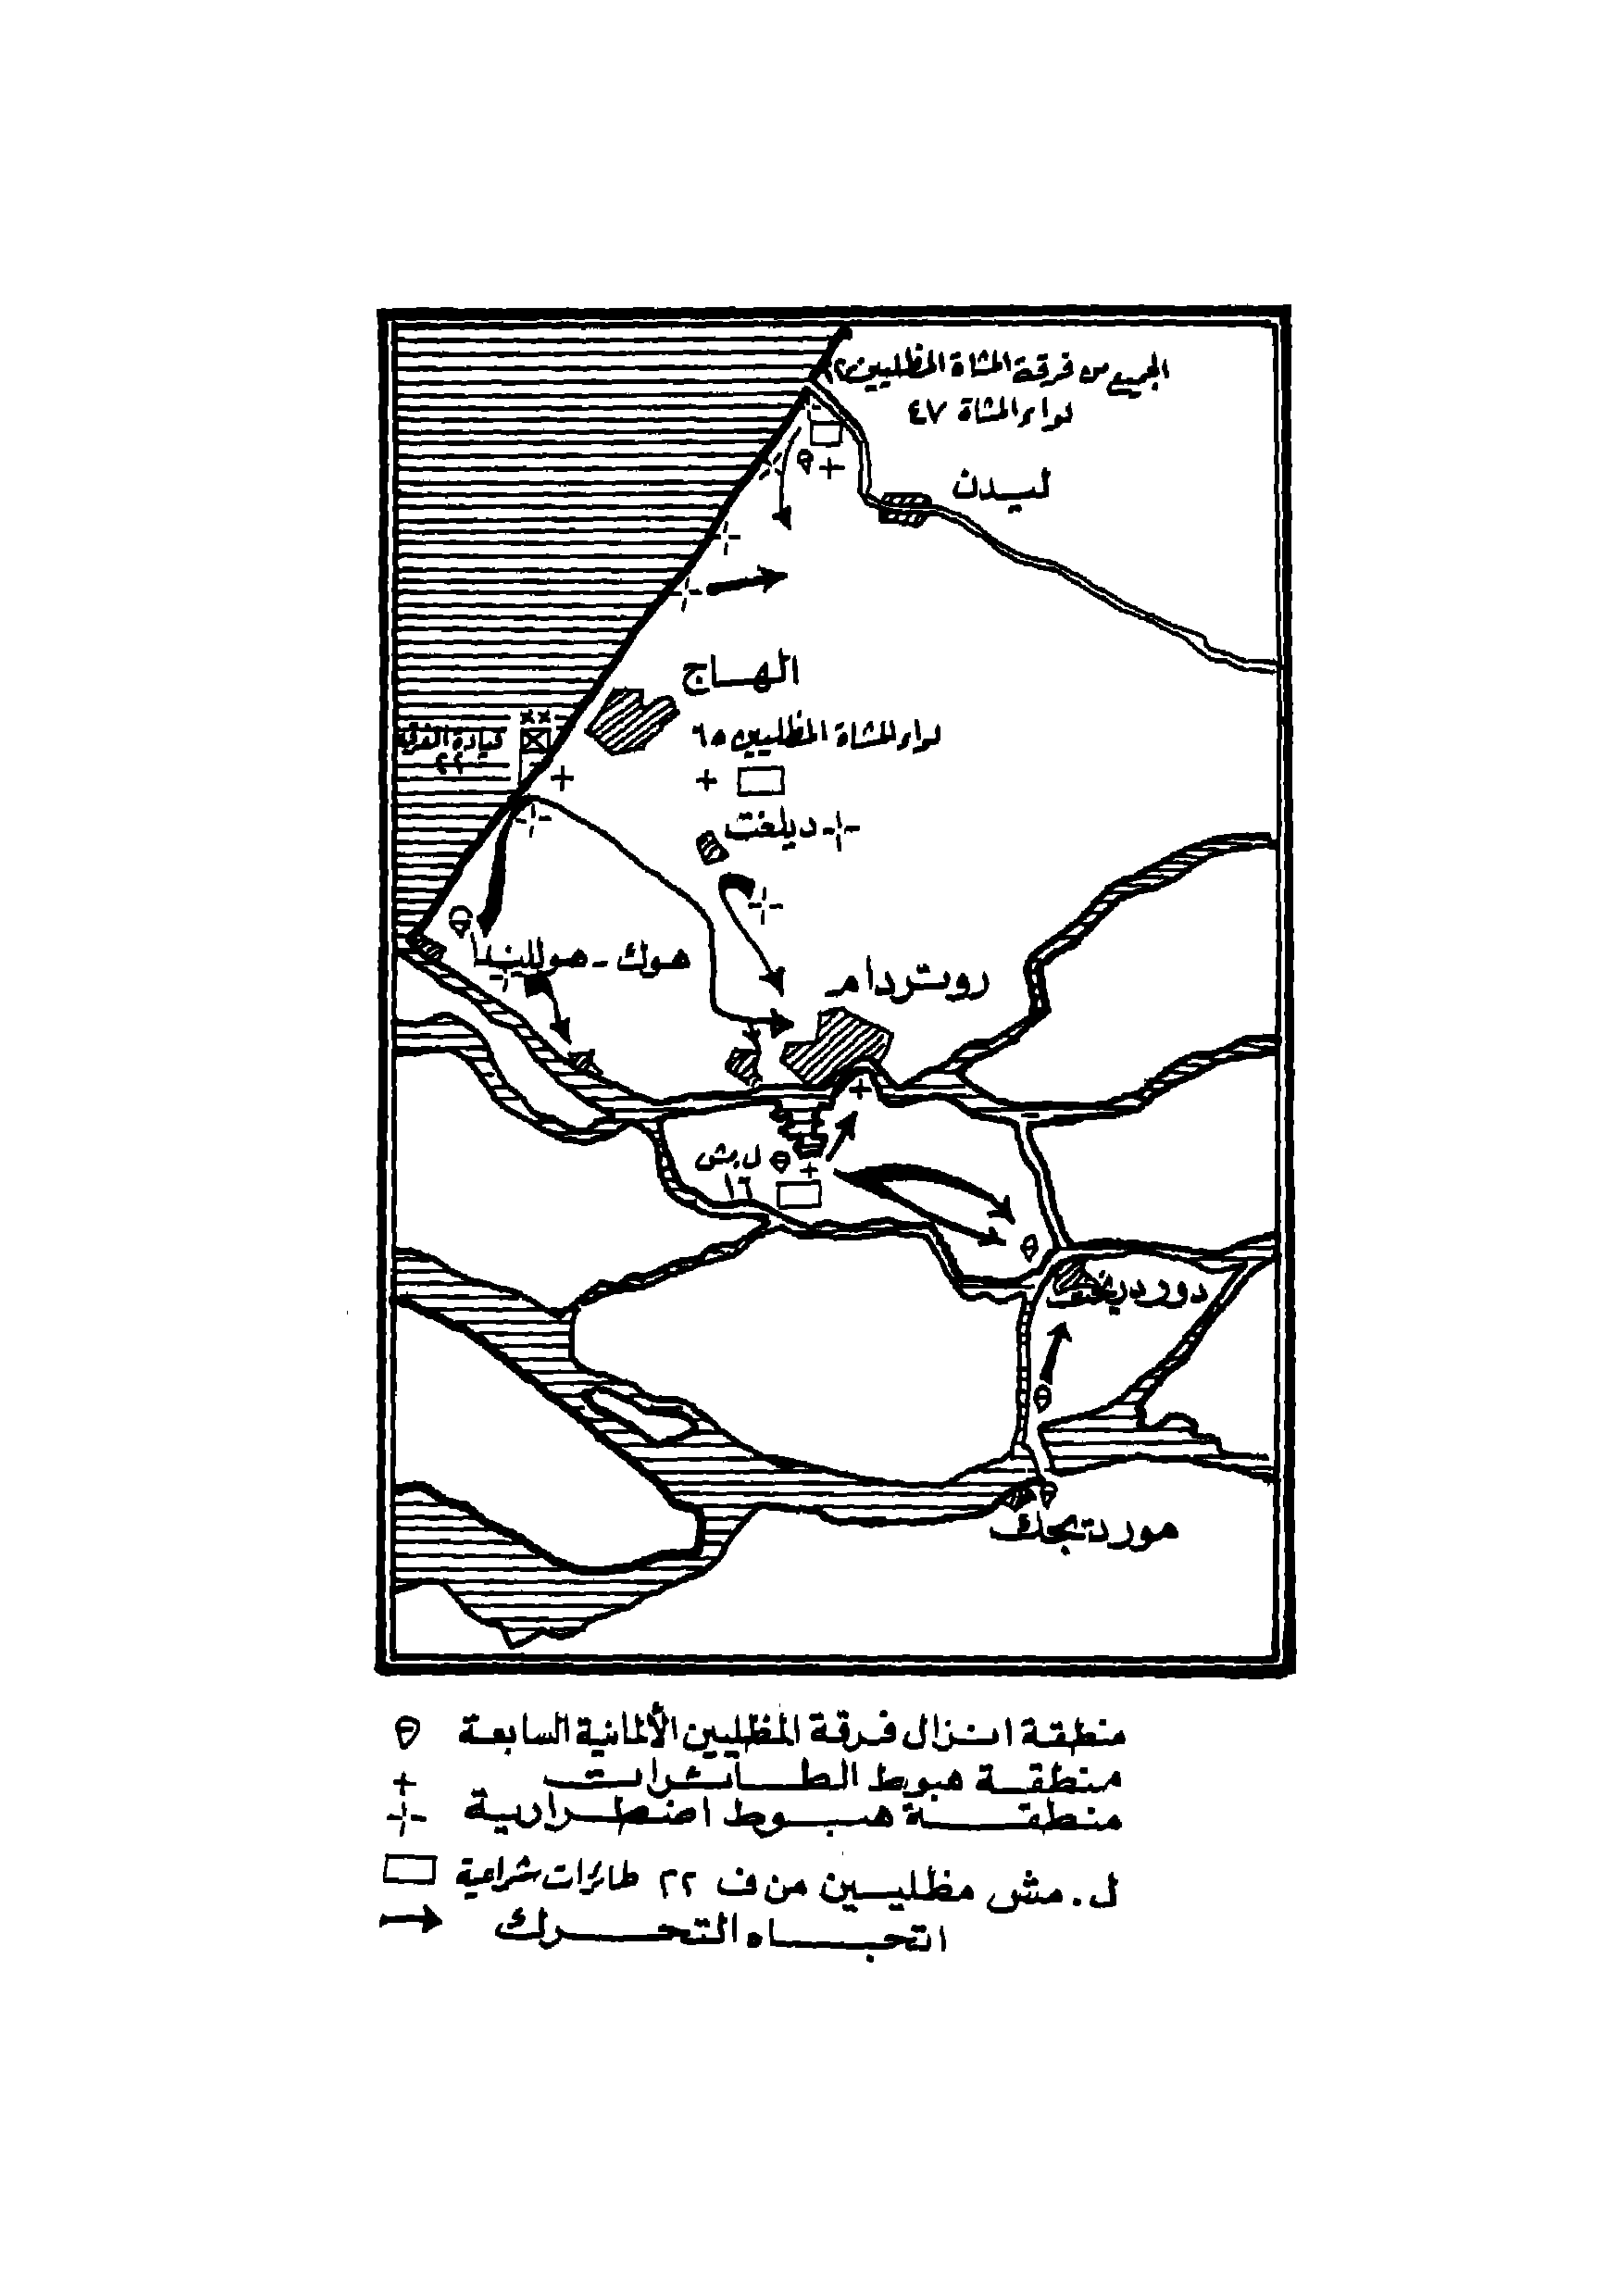 الجميع من فرقة المشاة المظليين ٢٢
لواء المشاة ٤٧
ليدن
الهاج
لواء المشاة المظليين ٦٥
قيادة الفرقة
٢٢
ديلفت
هوك - هوللندا
روتردام
ل.مش
١٦
دوردريخت
مورديجك
منطقة انزال فرقة المظليين الألمانية السابعة
منطقة هبوط الطائرات
منطقة هبوط اضطرارية
ل. مش مظليين من ف ٢٢ طائرات شراعية
اتجاه التحرك